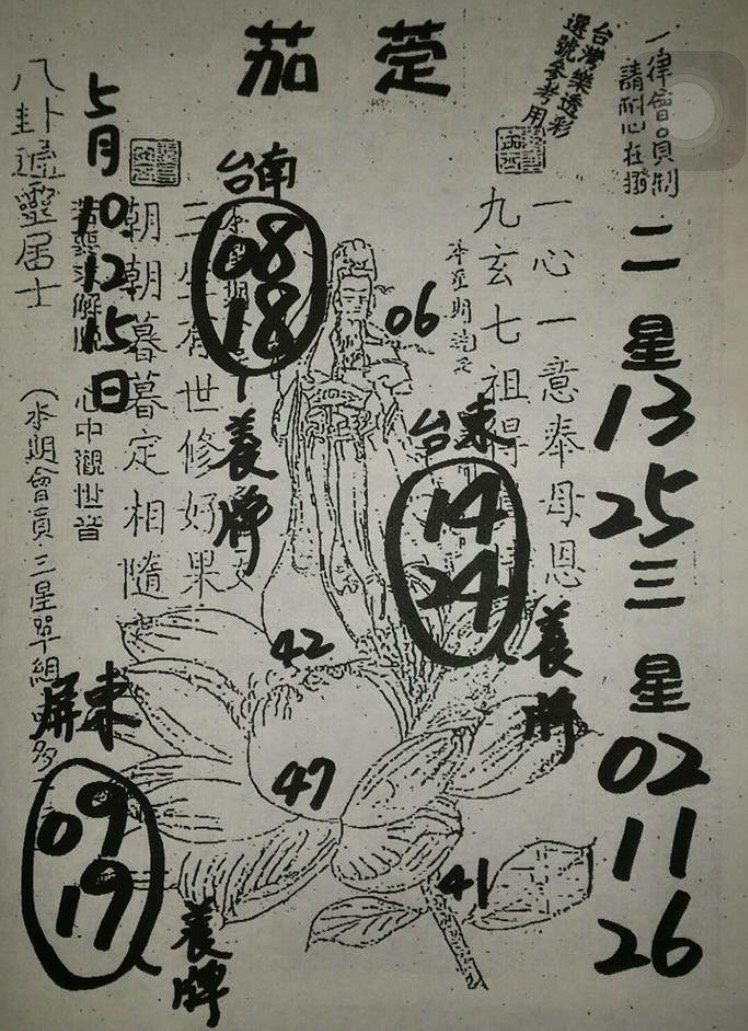 茄萣
台灣樂透彩
選號參考用
一律會員制
請耐心在撥
二星
13
25
三星
02
11
26
一心一意奉母恩
九玄七祖得
台東
14
24
養牌
06
台南
08
18
養牌
世修好果
朝朝暮暮定相隨
5月
10.
12
15
日
心中觀世音
八卦遁靈居士
(本期會員三星單組
屏東
09
19
養牌
42
47
41